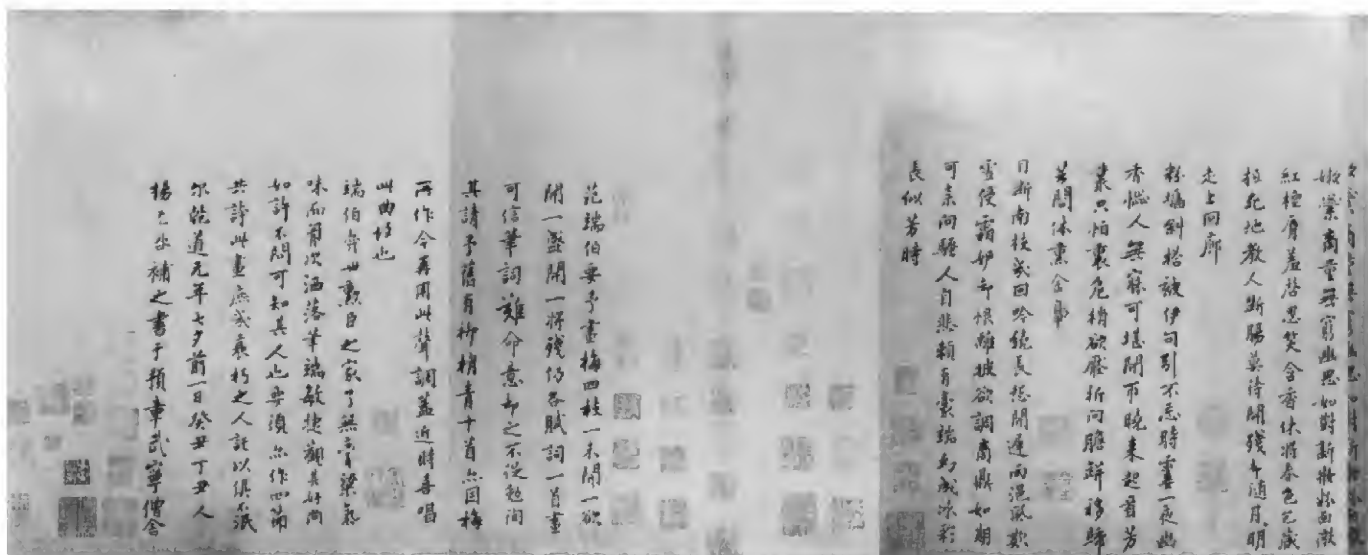 嫩蘂商量無窮幽思如對新妝粉面微
紅檀脣羞啓忍笑含香休將春色包藏
抵死地教人斷腸莫待開殘却隨月明
走上回廊
粉牆斜搭被伊勾引不忘時霎一夜幽
香惱人無寐可堪開匝曉來起看芳
叢只怕裏危梢欲壓折向膽缾移歸
芸閣休熏金鴨
目斷南枝幾回吟繞長怨開遲雨浥風欺
雪侵霜妒却恨離披欲調商鼎如期
可柰向騷人自悲賴有毫端幻成冰彩
長似芳時
范端伯要予畫梅四枝一未開一欲
開一盛開一將殘仍各賦詞一首畫
可信筆詞難命意却之不從勉徇
其請予舊有柳梢青十首亦因梅
所作今再用此聲調蓋近時喜唱
此曲故也
端伯奕世勳臣之家了無膏粱氣
味而胷次洒落筆端敏捷觀其好尚
如許不問可知其人也要須亦作四篇
共誇此畫庶幾衰朽之人託以俱不泯
尔乾道元年七夕前一日癸丑丁丑人
揚无咎補之書于豫章武寧僧舍